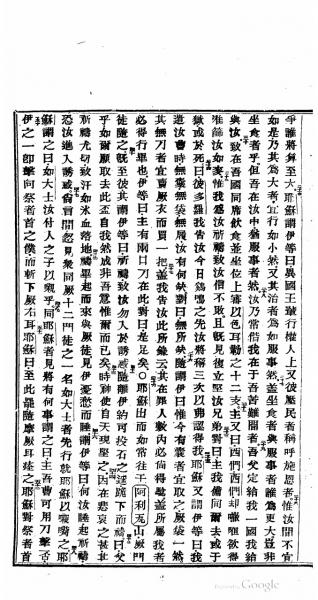 爭誰將算至大耶穌謂伊等曰異國王輩行權人上又彼壓民者稱呼施恩者惟汝間不宜
如是乃其為大者宜行如小然又其治者為如服事者然蓋坐食者與服事者誰為更大豈非
坐食者乎但吾在汝中猶服事者然汝乃常偕我在于吾苦難間者吾父定給我一國我給
與汝致在吾國同席飲食並坐位上審以色耳勒之十二支主又曰西們西們却嗾嚫欲得
惟篩汝如麥惟我為汝祈禱致汝信不敢且既見復立堅汝兄弟對曰主我備同爾去或于
獄或於死曰彼多羅我告汝今日鷄鳴之先汝將稱三次以弗認得我耶穌又謂伊等曰我
遣汝曹時無囊無袋無履汝有何缺對曰無所缺隨謂伊曰惟今有囊者宜取之厥袋一然
其無刀者宜賣厥衣而買一把蓋我告汝此所錄云其在罪人數內必尚得驗蓋所屬我者
必得行畢也伊等曰主有兩口刀在此對曰是足矣○耶穌出而如常往于阿利瓦山厥門
徒隨之既至彼其謂伊等曰祈禱致汝勿入于誘惑隨離伊約可投石之遠跪下而禱曰父
乎如爾願取去此盃自我然成非吾意惟爾而已矣時神使自天現堅之因在悲哀之甚其
祈禱尤切致汗如水血落地禱畢起而來與厥徒見伊憂愁而睡謂伊等曰何汝睡起祈禱
恐汝進入誘惑尚言間忽見眾同厥十二門徒之一名如大士者先行就耶穌以嚫嘴之耶
穌謂之曰如大士汝付人之子以嚫乎同耶穌者見將有何事謂之曰主吾曹可用刀擊否
伊之一即擊向祭者首之僕而斬下厥右耳耶穌曰至此罷隨摩厥耳痊之耶穌對祭者首
Google